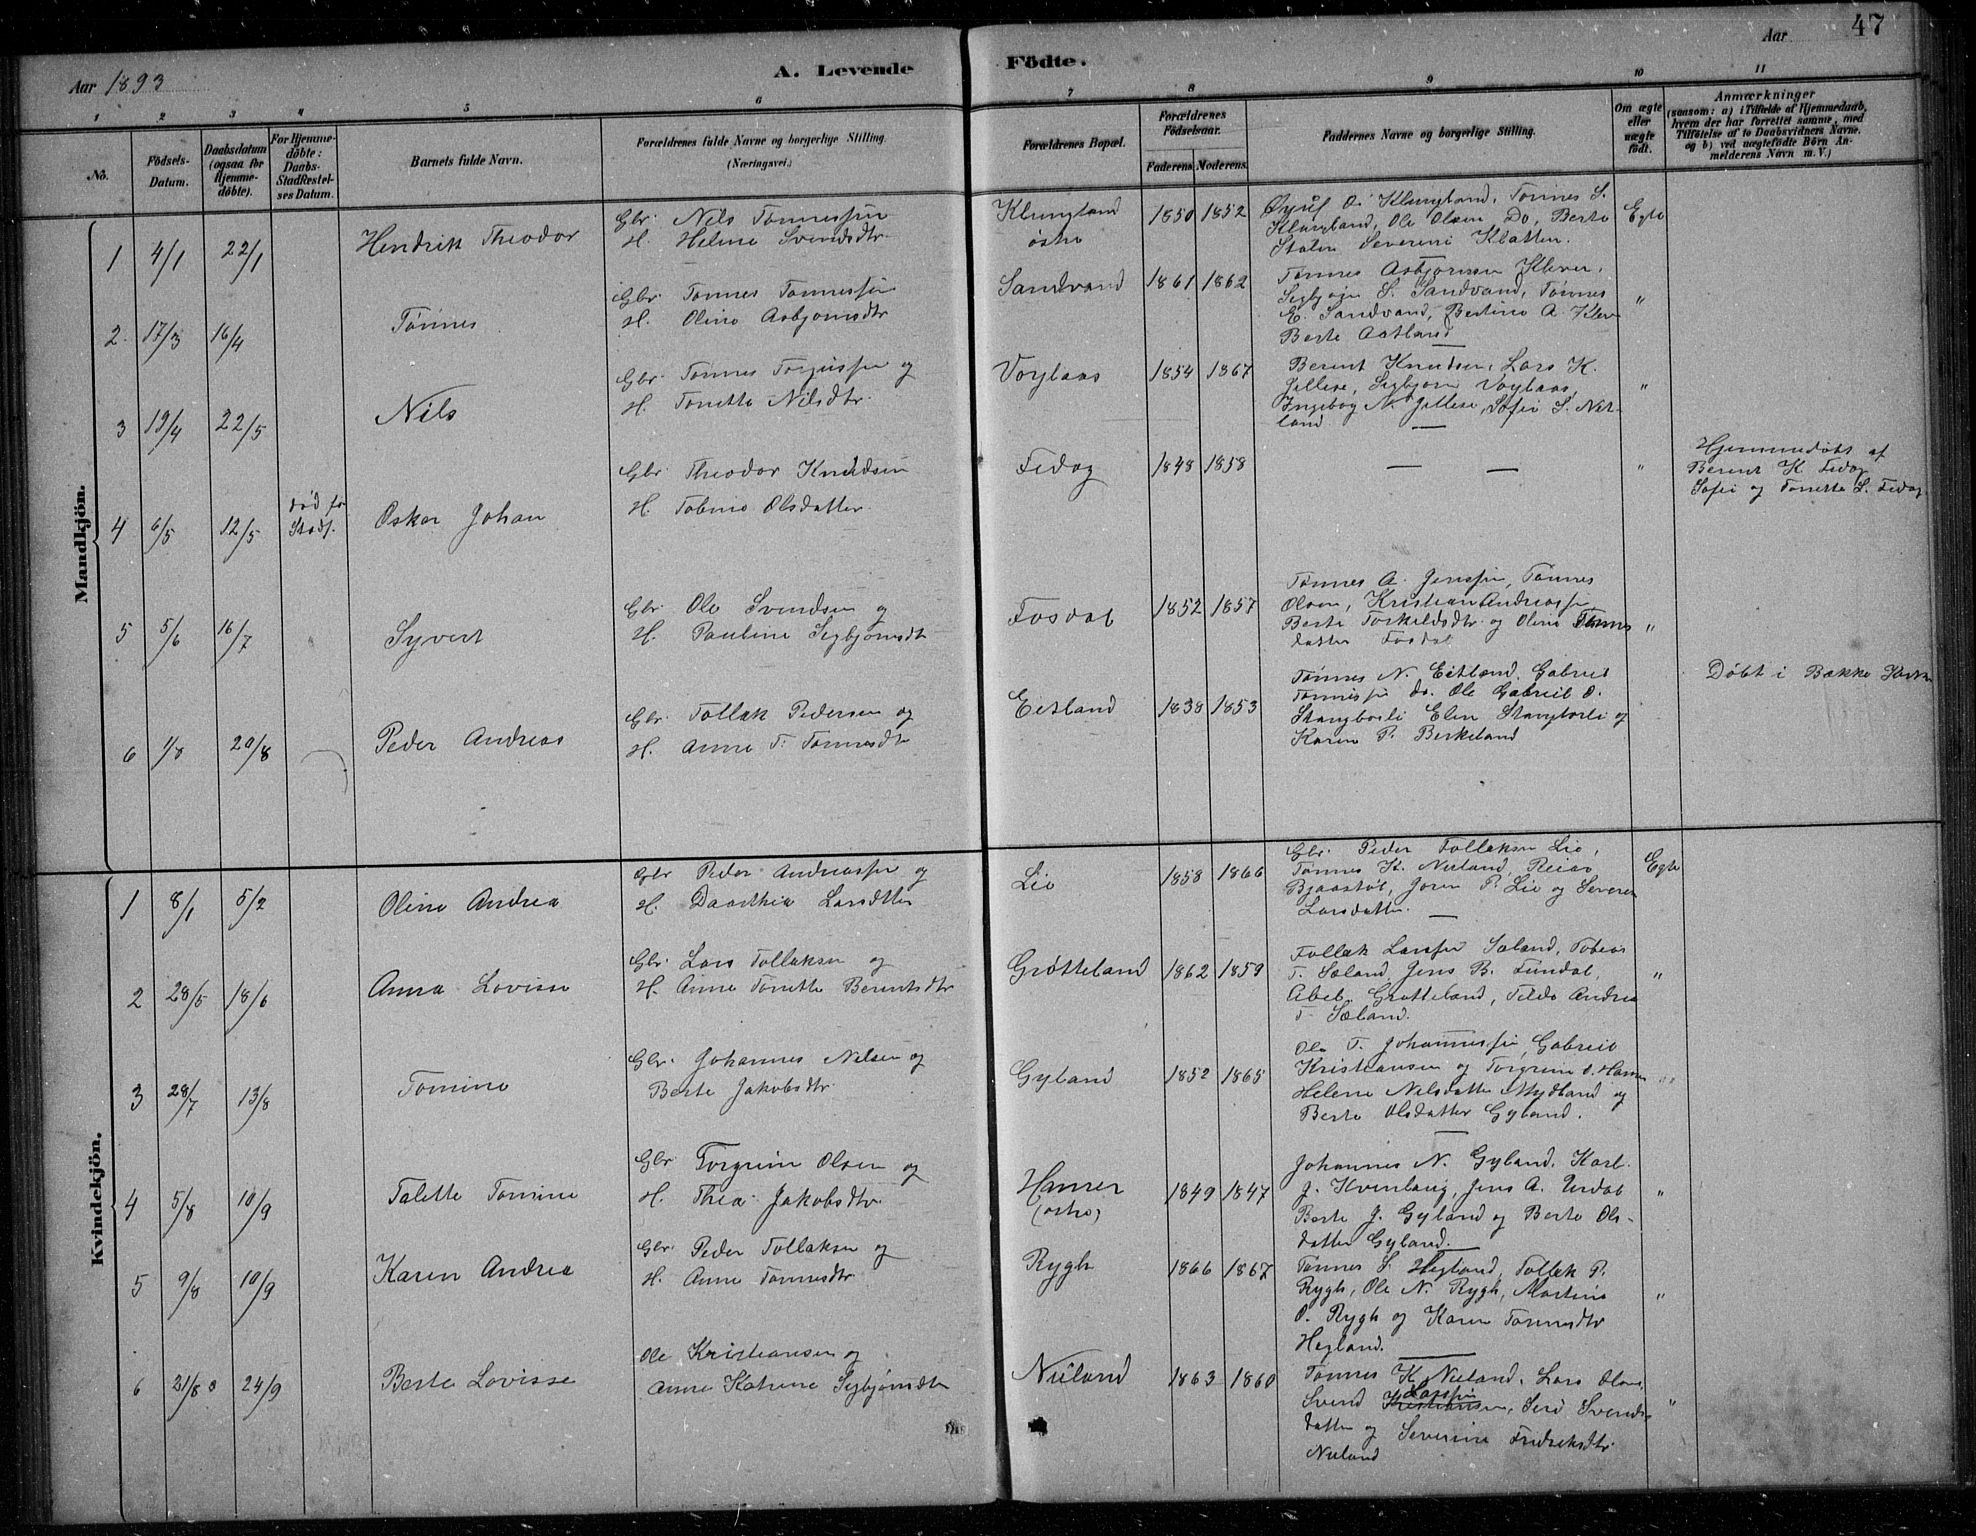 Aar 1893
A. Levende Födte.
Aar
47
1 2 3 4 5 6 7 8 9 10 11
No.
Födsels-Datum.
Daabsdatum (ogsaa for Hjemme-döbte).
For Hjemme-döbte: Daabs-Stadfæstelses Datum.
Barnets fulde Navn.
Forældrenes fulde Navne og borgerlige Stilling. (Næringsvei.)
Forældrenes Bopæl.
Forældrenes Födselsaar.
Faderens. Moderens.
Faddernes Navne og borgerlige Stilling.
Om ægte eller uægte födt.
Anmærkninger (saasom: a) i Tilfælde af Hjemmedaab, hvem der har forrettet samme, med Tilföielse af to Daabsvidners Navne, og b) ved uægtefödte Börn Anmelderens Navn m. V.)
Mandkjön.
1 4/1 22/1 Hendrik Theodor
Gbr. Nils Tønnessen
H. Helene Svendsdtr.
Klungland østre 1850 1852
O. Klungland, Tønnes S.
Klungland, Ole Olsen Do, Berte
Stolen Severine Klatten.
Egte
2 17/3 16/4 Tønnes
Gbr. Tønnes Tønnessen
H. Oline Asbjørnsdtr
Sandvand 1861 1862
Tønnes Asbjørnsen Klever,
Sigbjørn S. Sandvand, Tønnes
E. Sandvand, Bertine A. Klev
Berte Aatland
"
3 19/4 22/5 Nils
Gbr. Tønnes Torjussen og
H. Tonette Nilsdtr.
Voylaas 1854 1867
Berent Knudsen, Lars K.
Jellese, Sigbjørn Voylaas,
Ingebog N. Jellese, Sofie S. Net-
land
"
4 6/5 12/5 død før Stadf. Oskar Johan
Gbr. Theodor Knudsen
H. Tobine Olsdatter
Fedog 1848 1858
— —
"
Hjemmedøbt af
Berent K. Fedog
Sofie og Tonette L. Fedog
5 5/6 16/7 Syvert
Gbr. Ole Svendsen og
H. Pauline Sigbjørnsdtr
Fosdal 1852 1857
Tønnes A. Jenssen, Tønnes
Olsen, Kristian Andreassen
Berte Torkeldsdtr og Oline Tønnes
datter Fosdal
"
6 1/8 20/8 Peder Andreas
Gbr. Tollak Pedersen og
H. Anne T. Tønnesdtr
Eitland 1838 1853
Tønnes N. Eitland, Gabriel
Tønnessen do. Ole Gabriel O.
Stangborli Elen Stangborli og
Karen P. Birkeland
Døbt i Bakke Kirke
Kvindekjön.
1 8/1 5/2 Oline Andrea
Gbr Peder Andreassen og
H. Daarthea Larsdatter
Lie 1858 1866
Gbr. Peder Tollaksen Lie,
Tønnes K. Nuland, Reiar
Bjaastøl, Joren P. Lie og Severine
Larsdatter.
Egte
2 28/5 18/6 Anna Lovisse
Gbr. Lars Tollaksen og
H. Anne Tonette Berentsdtr
Grøtteland 1862 1859
Tollak Larssen Sæland, Tobias
T. Sæland, Jens B. Fundal,
Abel Grøtteland, Tilda Andrea
T. Sæland.
"
3 28/7 13/8 Tomine
Gbr. Johannes Nilsen og
Berte Jakobsdtr.
Gyland 1852 1865
Ole T. Johannessen, Gabriel
Kristiansen og Torgrim O. Hamre
Helene Nilsdatter Mydland og
Berte Olsdatter Gyland.
"
4 5/8 10/9 Talette Tomine
Gbr Torgrim Olsen og
H. Thea Jakobsdtr.
Hamre (østre) 1849 1847
Johannes N. Gyland, Karl
J. Kvinlaug, Jens A. Urdal
Berte J. Gyland og Berte Ols-
datter Gyland.
"
5 9/8 10/9 Karen Andrea
Gbr. Peder Tollaksen og
H. Anne Tønnesdtr
Rygh 1866 1867
Tønnes S. Hegland, Tollak P.
Rygh, Ole N. Rygh, Martine
O. Rygh og Karen Tønnesdtr
Hegland.
"
6 31/8 24/9 Berte Lovisse
Ole Kristiansen og
Anne Katrine Sigbjørnsdtr
Nuland 1863 1860
Tønnes K. Nuland, Lars Olsen,
Svend Larssen Kristiansen, Seri Svends-
datter og Severine Fredriksdtr
Nuland
"